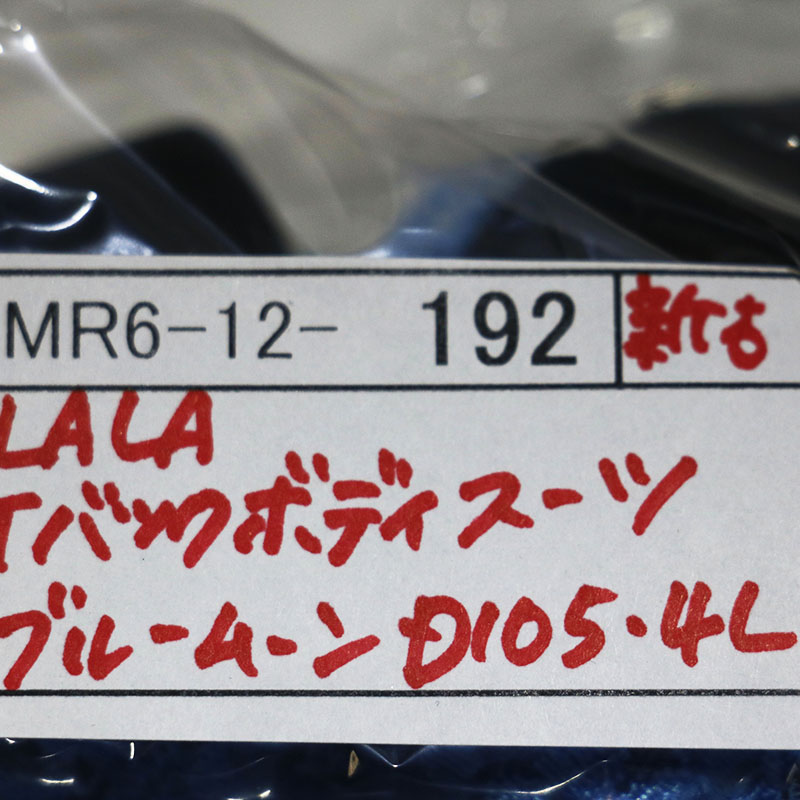 MR6-12- 192 新古
LALA
Tバックボディスーツ
ブルームーン D105・4L